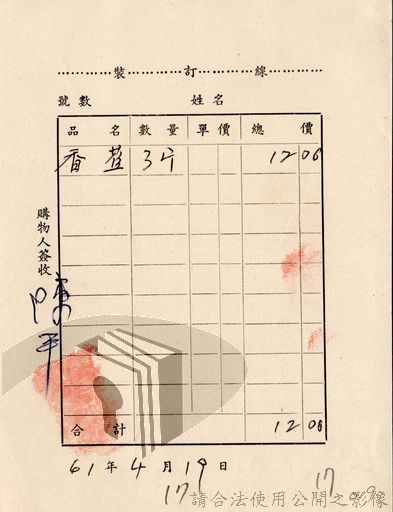 裝訂線
號數 姓名
品名 數量 單價 總價
香菇 3斤 12 06
購物人簽收
合計 12 06
61年4月19日
17
17
請合法使用公開之影像